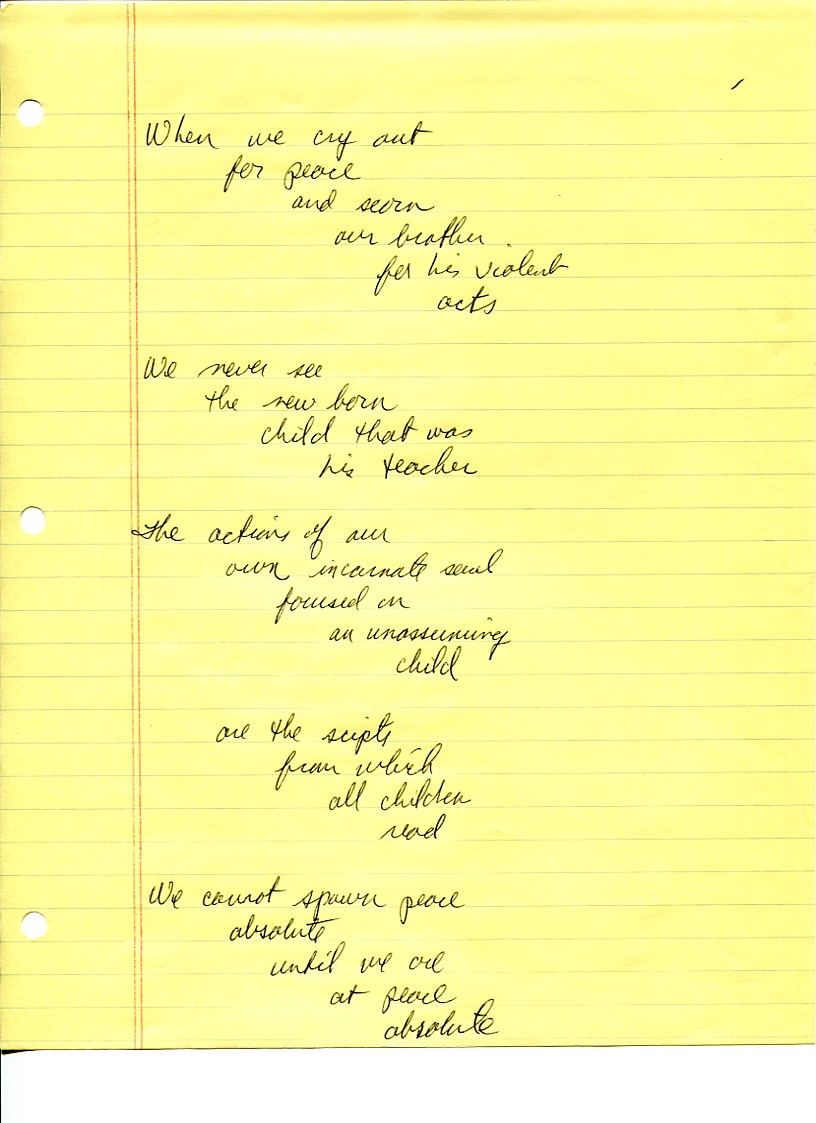 When we cry out
for peace
and scorn
our brother
for his violent
acts
We never see
the new born
child that was
his teacher
The actions of our
own incarnate soul
focused on
an unassuming
child
are the scipts
from which
all children
read
We cannot spawn peace
absolute
until we are
at peace
absolute